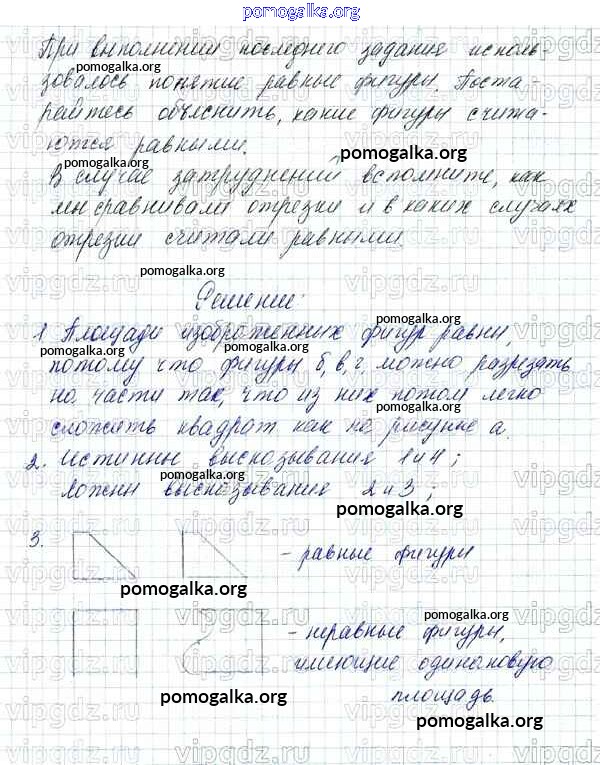 pomogalka.org
При выполнении последнего задания исполь
зовалось понятие равные фигуры. Поста-
райтесь объяснить, какие фигуры счита-
ются равными.
pomogalka.org
В случае затруднений вспомните, как
мы сравнивали отрезки и в каких случаях
отрезки считали равными.
pomogalka.org
Решение:
pomogalka.org
1. Площади изображенных фигур равны,
pomogalka.org
потому что фигуры б, в, г можно разрезать
на части так, что из них потом легко
pomogalka.org
сложить квадрат как на рисунке а.
2. Истинны высказывания 1 и 4;
pomogalka.org
Ложны высказывания 2 и 3;
pomogalka.org
3.
- равные фигуры
pomogalka.org
pomogalka.org
- неравные фигуры,
имеющие одинаковую
площадь.
pomogalka.org
pomogalka.org
vipgdz.ru